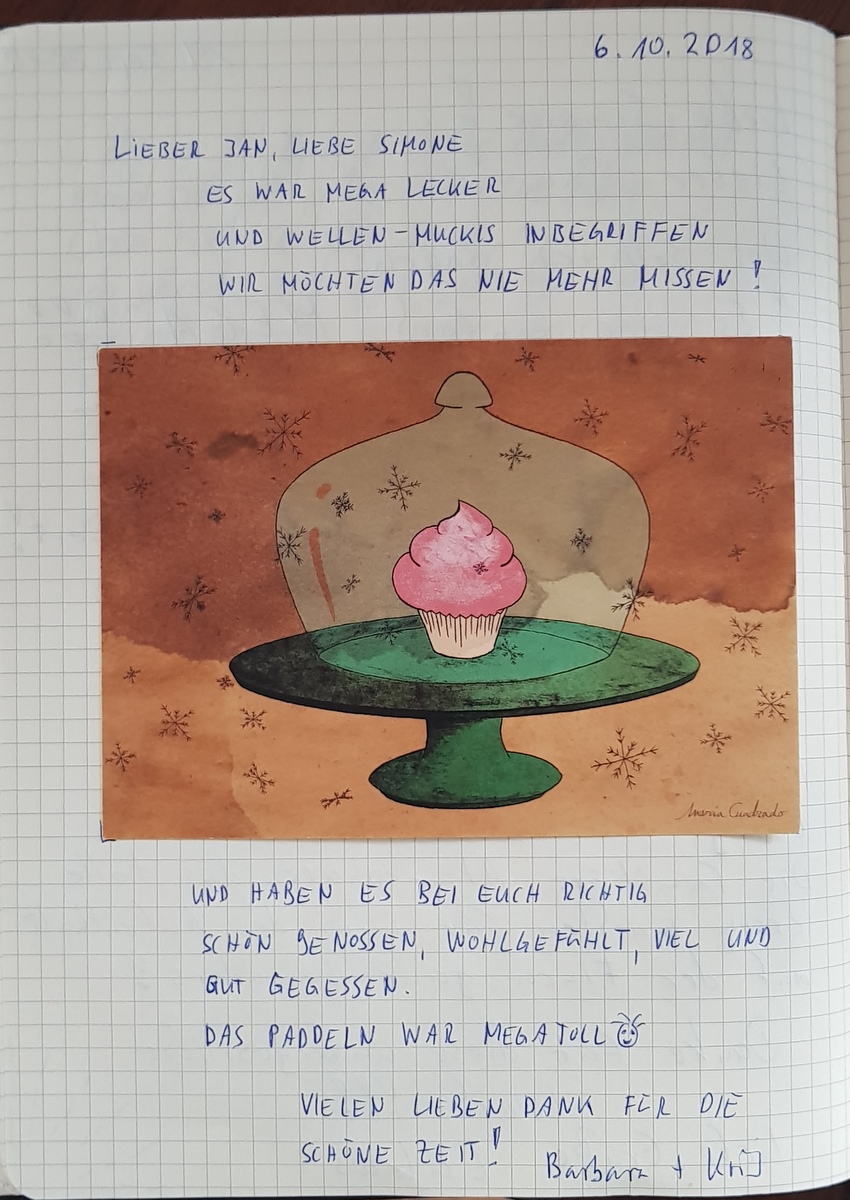 6.10.2018
LIEBER JAN, LIEBE SIMONE
ES WAR MEGA LECKER
UND WELLEN-MUCKIS INBEGRIFFEN
WIR MÖCHTEN DAS NIE MEHR MISSEN!
Maria Cuadrado
UND HABEN ES BEI EUCH RICHTIG
SCHÖN GENOSSEN, WOHLGEFÜHLT, VIEL UND
GUT GEGESSEN.
DAS PADDELN WAR MEGA TOLL
VIELEN LIEBEN DANK FÜR DIE
SCHÖNE ZEIT!
Barbara +